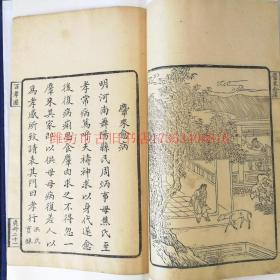 麞來愈病
明河南舞陽縣民周炳事母焦氏至
孝常病篤天禱神求以身代遂愈
後復病劇思食麞肉求之不得忽一
麞來其家即以供母母病復差人以
為孝感所致請表其門曰孝行
實錄
百孝圖